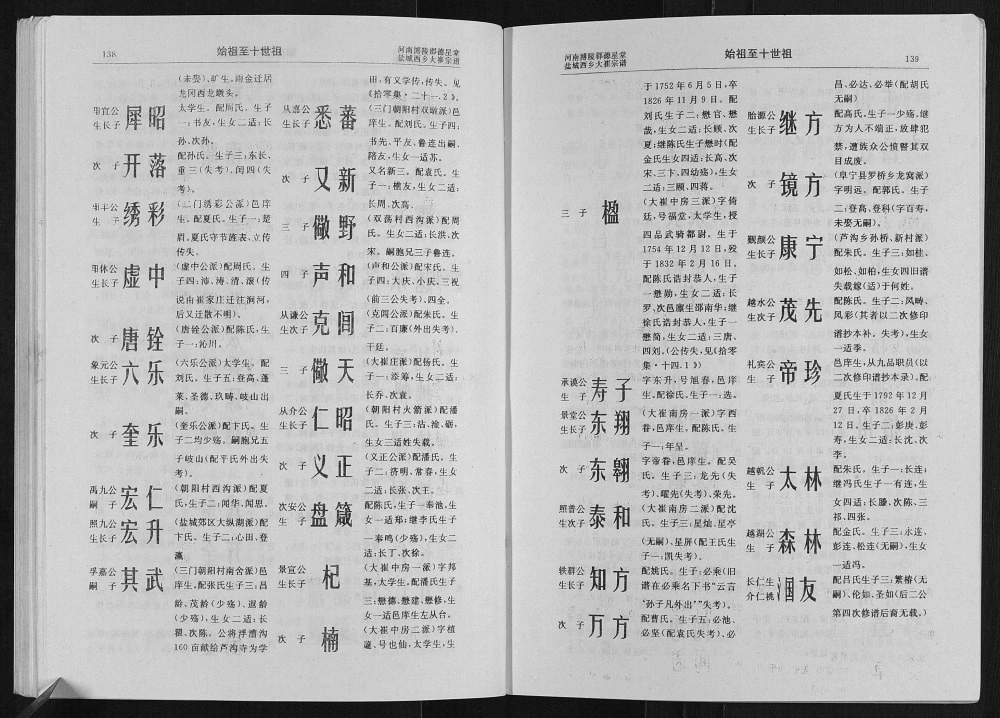 138
始祖至十世祖
河南博陵郡德星堂
盐城西乡大崔宗谱
(未娶)、旷生、雨金迁居
龙冈西龙墩头。
用宜公
生长子
犀昭
太学生。配周氏。生子
一:书友,生女二适:长
次、次孙。
次 子
开落
配孙氏。生子三:东长、
重三(失考)、闰四(失
考)。
生 子
绣彩
(二门绣彩公派)邑庠
生。配夏氏。生子一:楚
眉。夏氏守节旌表、立传
传失。
用休公
生长子
虚中
(虚中公派)配周氏。生
子四:沛、涛、清、滚(传
说由崔家庄迁往涧河,
后又迁散不明)。
次 子
唐铨
(唐铨公派)配陈氏,生
子一:沁川。
象元公
生长子
六乐
(六乐公派)太学生。配
刘氏。生子五:登高、蓬
莱、圣德、玖畴、岐山出
嗣。
次 子
奎乐
(奎乐公派)配卞氏。生
子二均少殇。嗣胞兄五
子岐山(配平氏外出失
考)。
禹九公
嗣 子
宏仁
(朝阳村西沟派)配夏
氏。生子二:闻华、闻思。
照九公
生长子
宏升
(盐城郊区大纵湖派)配
卞氏。生子二:心田、登
瀛
孚嘉公
嗣 子
其武
(三门朝阳村南舍派)邑
庠生。配张氏生子三:昌
龄、茂龄(少殇)、遐龄
(少殇),生女二适:长
瞿、次陈。公将浡漕沟
160亩献给芦沟寺为学
田,有义学传,传失。见
《拾零集·二十一.2》。
从嘉公
生长子
悉蕃
(三门朝阳村双墩派)邑
庠生。配刘氏。生子四:
书先、平友、鲁连出嗣、
陪友,生女一适苏。
次 子
又新
又名新三。配袁氏。生
子一:樵友,生女二适:
长周、次高。
三 子
儆野
(双荡村西沟派)配周
氏。生女二适:长洪、次
宋。嗣胞兄三子鲁连。
四 子
声和
(声和公派)配宋氏。生
子四:大庆、小庆、三祝
(前三公失考)、四全。
从谦公
生次子
克闾
(克闾公派)配朱氏。生
子二:百廉(外出失考)、
干廷。
三 子
儆天
(大崔庄派)配杨氏。生
子一:添筹,生女二适:
长乔、次袁。
从介公
生长子
仁昭
(朝阳村大箭派)配潘
氏。生子三:沽、淦、砺,
生女三适姓失载。
次 子
义正
(义正公派)配潘氏。生
子二:济明、常春,生女
二适:长张、次王。
次安公
生 子
盘箴
配陈氏,生子一奉池,生
女一适郑;继李氏生子
一奉鸣(少殇),生女二
适:长丁、次徐。
景宣公
生长子
杞
(大崔中房一派)字邦
基,太学生。配潘氏生子
三:懋德、懋建、懋修,生
女一适邑庠生左丛台。
次 子
楠
(大崔中房二派)字植
谶、号也仙,太学生,生
河南博陵郡德星堂
盐城西乡大崔宗谱
始祖至十世祖
139
于1752年6月5日,卒
1826年11月9日。配
刘氏生子二:懋官、懋
哉,生女二适:长顾、次
夏;继陈氏生子懋时(配
金氏生女四适:长高、次
宋、三卞、四幼殇),生女
二适:三顾、四蒋。
三 子
楹
(大崔中房三派)字倚
廷,号福堂,太学生,授
四品武骑都尉。生于
1754年12月12日,殁
于1832年2月16日。
配陈氏诰封恭人,生子
一懋勋,生女二适:长
罗、次邑廪生邵南华;继
徐氏诰封恭人,生子一
懋简,生女二适:三唐、
四刘。(公传失,见《拾零
集·十四.1》)
承谟公
生 子
寿子
字东升,号旭春,邑庠
生。配徐氏。生子一:选。
景堂公
生长子
东翔
(大崔南房一派)字西
眷,邑庠生。配陈氏。生
子一:年呈。
次 子
东翱
字帝眷,邑庠生。配吴
氏。生子三:龙先(失
考)、曜先(失考)、荣先。
照普公
生次子
泰和
(大崔南房二派)配沈
氏。生子三:星灿、星亭
(无嗣)、星屏(配王氏生
子一:凯失考)。
轶群公
生长子
知方
配姚氏。生子:必乘(旧
谱在必乘名下书“云言
‘孙子凡外出’”失考)。
次 子
万方
配曹氏。生子五:必池、
必坚(配袁氏失考)、必
昌、必达、必举(配胡氏
无嗣)
胎源公
生长子
继方
配高氏。生子一少殇。继
方为人不端正,放肆犯
禁,遭族众公愤瞽其双
目成废。
次 子
镜方
(阜宁县罗桥乡龙窝派)
字明远。配郭氏。生子
二:登高、登科(字百寿,
未娶无嗣)。
觐颜公
生 子
康宁
(芦沟乡孙桥、新村派)
配朱氏。生子三:如桂、
如松、如柏,生女四旧谱
失载嫁(适)于何姓。
越水公
生次子
茂先
配陈氏。生子二:凤畴、
凤彩(其者以二次修印
谱抄本补。失考),生女
一适季。
礼宾公
生 子
帝珍
邑庠生,从九品职员(以
二次修印谱抄本录)。配
夏氏生于1792年12月
27日,卒1826年2月
12日。生子二:彭庚、彭
寿,生女二适:长沈、次
李。
越帆公
生 子
太林
配朱氏。生子一:长连;
继冯氏生子一有连,生
女四适:长滕、次陈、三
祁、四张。
越湖公
生 子
森林
配金氏。生子三:永连、
彭连、松连(无嗣),生女
一适冯。
长仁生
介仁祧
涸友
配吕氏生子三:繁椿(无
嗣)、伦如、圣如(后二公
第四次修谱后裔无载。)